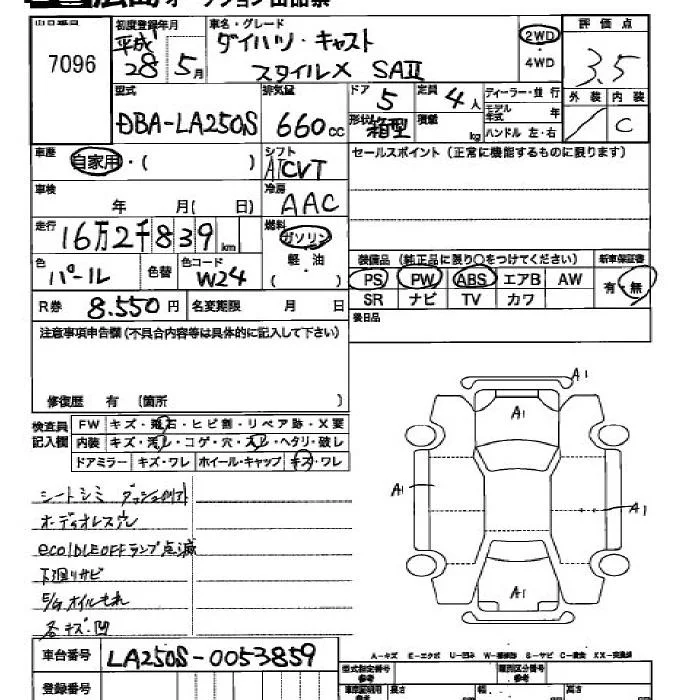 オークション出品票
出品番目 初度登録年月 車名・グレード 評価点
7096 平成 28年 5月 ダイハツ・キャスト 2WD 3.5
スタイルX SAII ・4WD
型式 排気量 ドア 5 定員 4人 ディーラー・並行 外装 内装
DBA-LA250S 660cc 形状 箱型 積載 kg モデル年式 年 / C
ハンドル 左・右
車歴 自家用・( ) シフト AT CVT セールスポイント(正常に機能するものに限ります)
車検 年 月( 日) 冷房 AAC
走行 16万2千839km 燃料 ガソリン
軽・油
( ) 装備品(純正品に限り○をつけてください) 新車保証書
色 パール 色替 色コード W24 PS PW ABS エアB AW 有・無
R券 8,550円 名変期限 月 日 SR ナビ TV カワ
後日品
注意事項申告欄(不具合内容等は具体的に記入して下さい)
修復歴 有(箇所 )
検査員記入欄 FW キズ・飛石・ヒビ割・リペア跡・X要
内装 キズ・汚レ・コゲ・穴・スレ・ヘタリ・破レ
ドアミラー キズ・ワレ ホイール・キャップ キズ・ワレ
A1
A1
A1
A1
A1
シートシミ
オーディオレス穴
eco IDLE OFFランプ点滅
下廻りサビ
E/gオイルもれ
各キズ・凹
A-キズ E-エクボ U-凹み W-補修跡 S-サビ C-腐食 XX-交換済
車台番号 LA250S-0053859 型式指定番号 類別区分番号
登録番号 長さ 幅 高さ